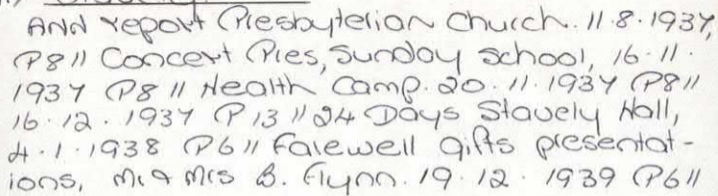 And report Presbyterian Church. 11.8.1937,
P8 // Concert Pres, Sunday School, 16.11.
1937 P8 // Health Camp. 20.11.1937 P8 //
16.12.1937 P13 // 24 Days Stavely Hall,
4.1.1938 P6 // Farewell gifts presentat-
ions, Mr & Mrs B. Flynn. 19.12.1939 P6 //